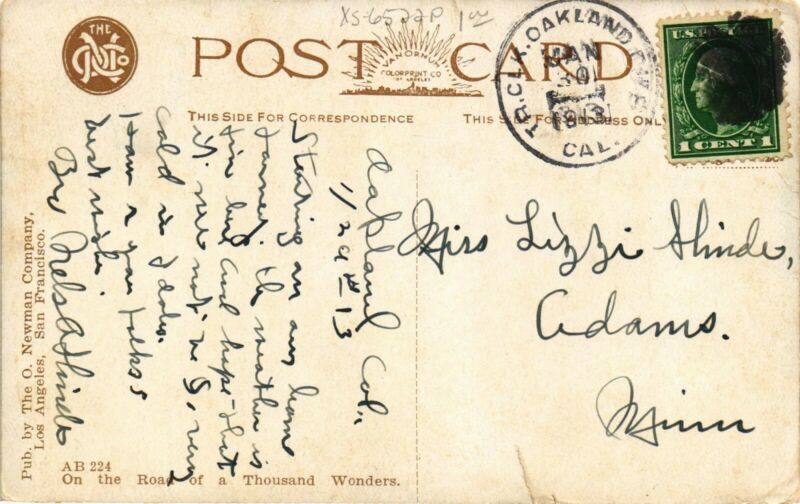 XS-6522P 1 00
THE
O
N
Co
POST CARD
VAN ORNUM
COLORPRINT CO
LOS ANGELES
THIS SIDE FOR CORRESPONDENCE
THIS SIDE FOR ADDRESS ONLY
TR. CLK. OAKLAND
JAN
30
1913
CAL.
U.S. POSTAGE
1 CENT 1
Oakland Cal.,
1/29th-13
Starting on our home
journey. the weather is
fine here and hope that
it is not very
cold in Idaho.
How r you folks
best wishes
Bro Nels A Slinde
Miss Lizzi Slinde,
Adams.
Minn
Pub. by The O. Newman Company,
Los Angeles, San Francisco.
AB 224
On the Road of a Thousand Wonders.